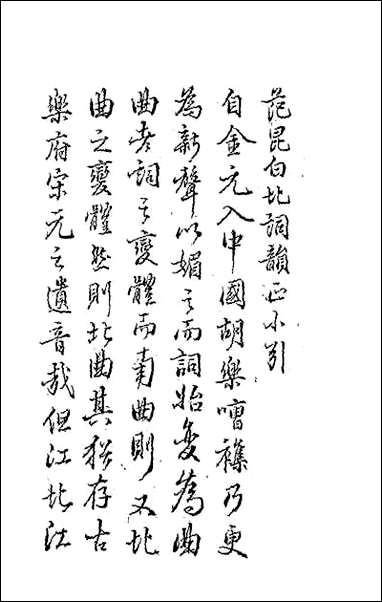 范昆白北詞韻正小引
自金元入中國胡樂嘈襍乃更
為新聲以媚之而詞始變為曲
曲者詞之變體而南曲則又北
曲之變體然則北曲其猶存古
樂府宋元之遺音哉但江北江